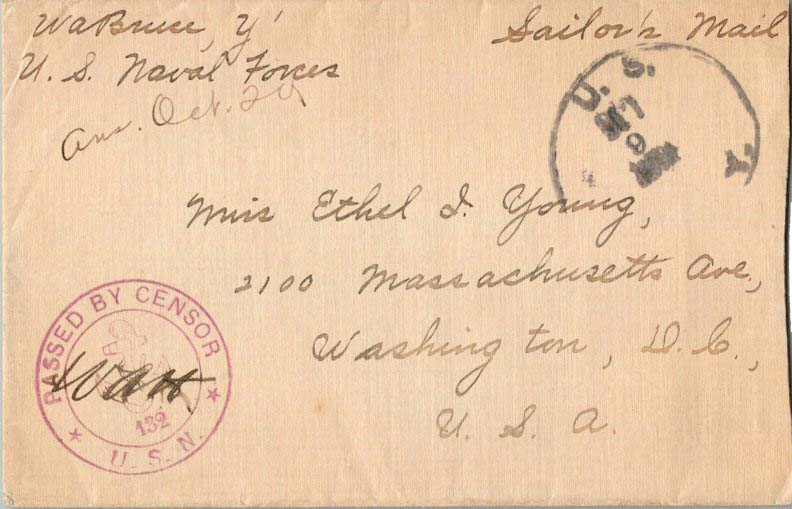 WaBruce, Y'
U. S. Naval Forces
Sailor's Mail
Ans. Oct. 24
U. S.
Y.
Miss Ethel I. Young,
2100 Massachusetts Ave.,
Washington, D.C.,
U. S. A.
PASSED BY CENSOR
WAH.
132
U. S. N.